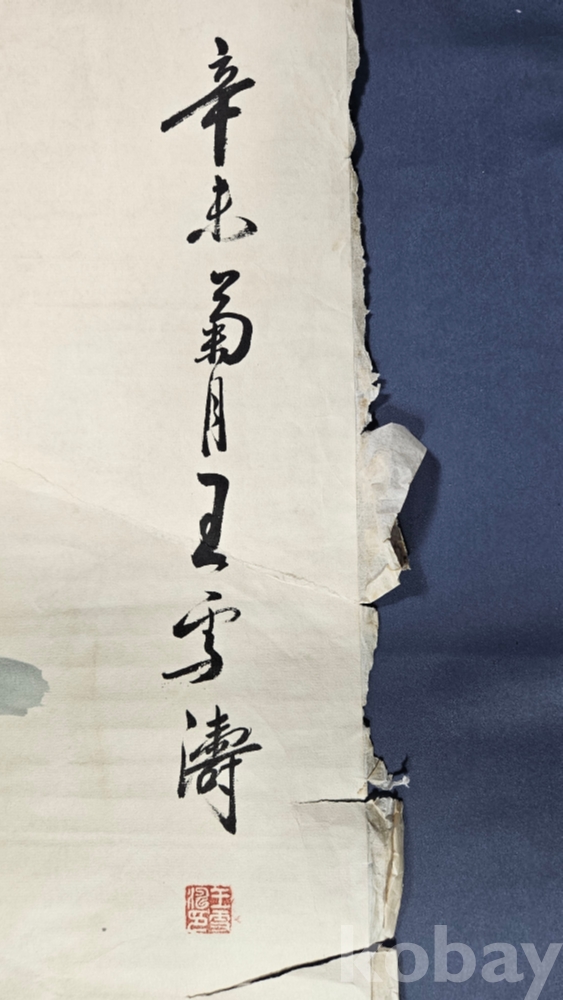 辛未菊月王雪濤
王雪濤印
kobay